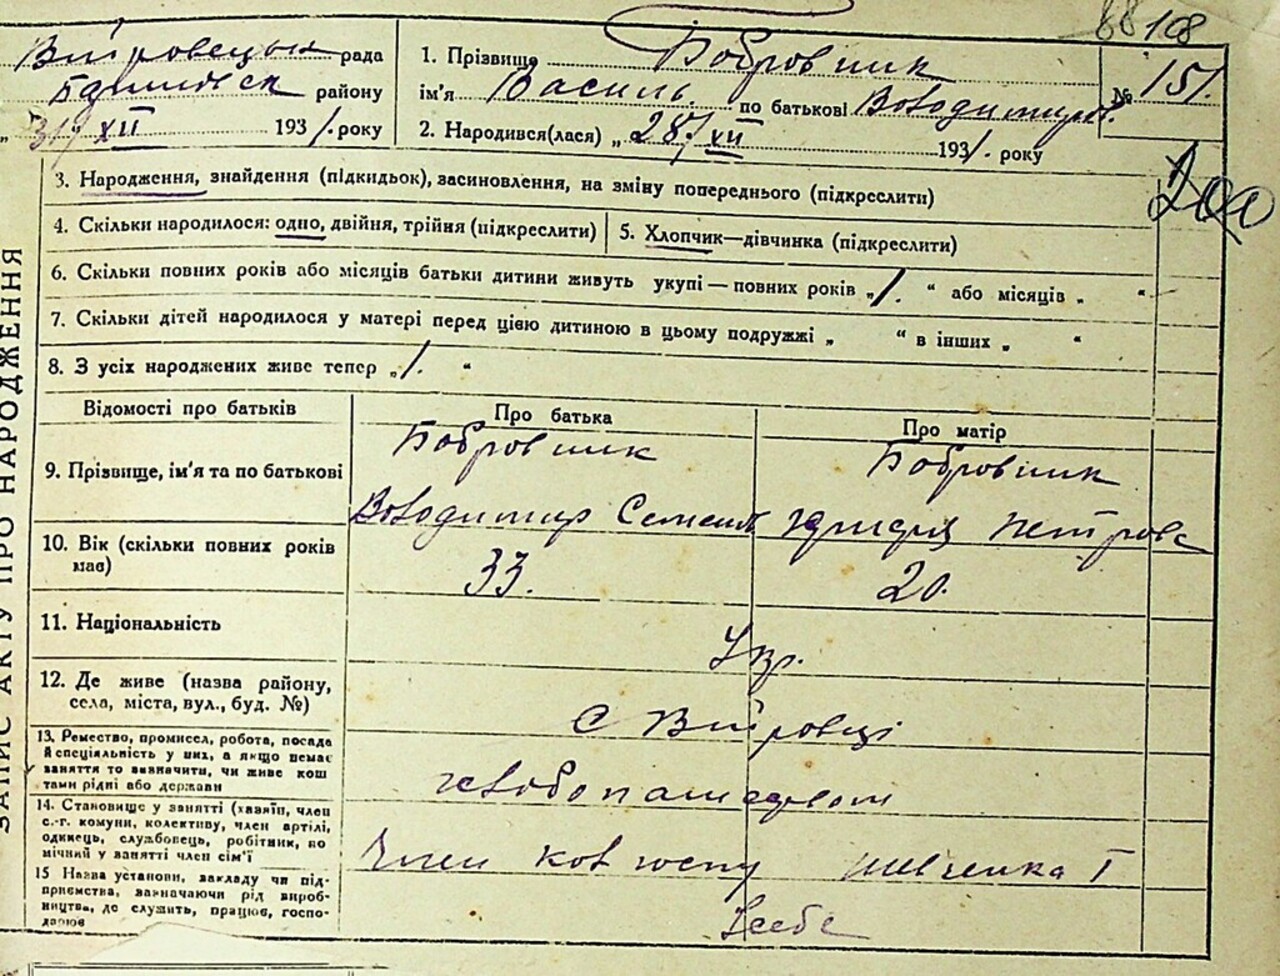 88 108
Війтовецька рада
району
„31“ XII 1931. року
1. Прізвище Бобровник
ім'я Василь. по батькові Володимиров.
№ 151.
2. Народився(лася) „28“ XII 1931. року
200
ЗАПИС АКТУ ПРО НАРОДЖЕННЯ
3. Народження, знайдення (підкидьок), засиновлення, на зміну попереднього (підкреслити)
4. Скільки народилося: одно, двійня, трійня (підкреслити)
5. Хлопчик—дівчинка (підкреслити)
6. Скільки повних років або місяців батьки дитини живуть укупі — повних років „1. “ або місяців „ “
7. Скільки дітей народилося у матері перед цією дитиною в цьому подружжі „ “ в інших „ “
8. З усіх народжених живе тепер „1. “
Відомості про батьків
Про батька
Про матір
9. Прізвище, ім'я та по батькові
Бобровник
Володимир Семенов
Бобровник
Петрова
10. Вік (скільки повних років
має)
33.
20.
11. Національність
Укр.
12. Де живе (назва району,
села, міста, вул., буд. №)
С Війтовці
13. Ремество, промисел, робота, посада
й спеціяльність у них, а якщо немає
заняття то визначити, чи живе кош
тами рідні або держави
хлібопашедвом
14. Становище у занятті (хазяїн, член
с.-г. комуни, колективу, член артілі,
одинець, службовець, робітник, по
мічний у занятті член сім'ї
Член колгоспу Шевченка Т
15 Назва установи, закладу чи під-
приємства, зазначаючи рід вироб-
ництва, де служить, працює, госпо-
дарює
У себе